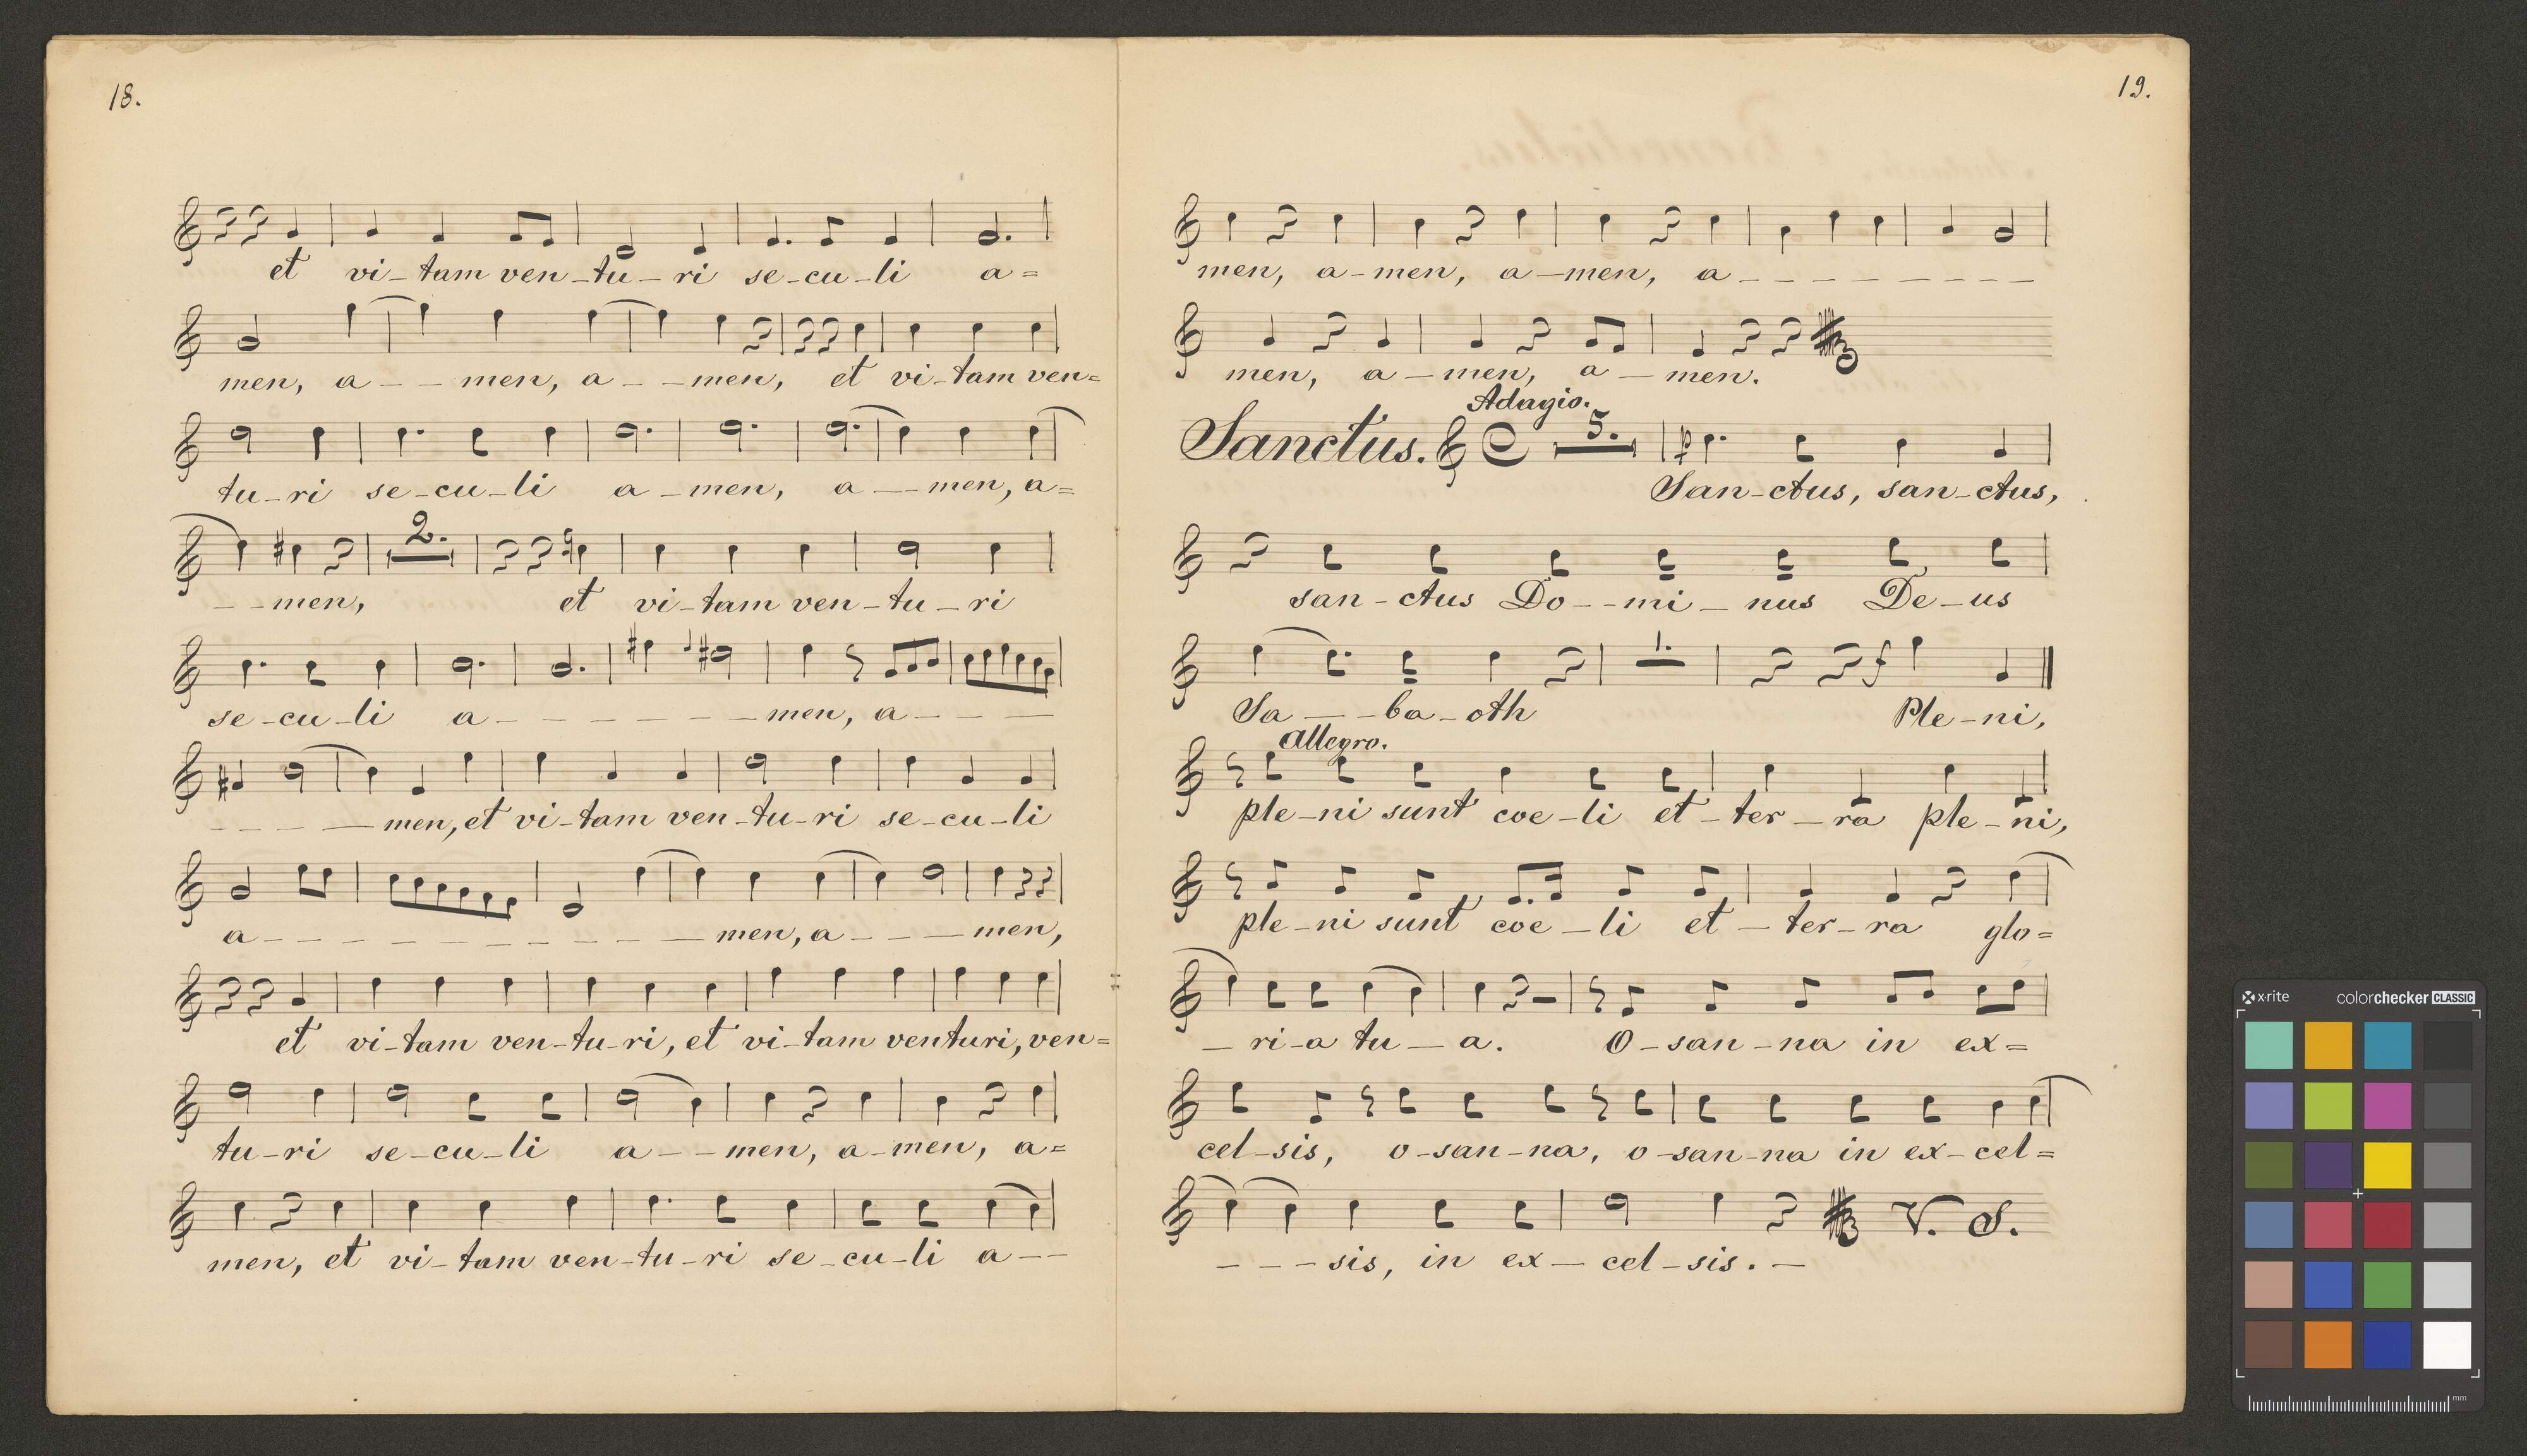 18.
et vi-tam ven-tu-ri se-cu-li a=
men, a--men, a--men, et vi-tam ven=
tu-ri se-cu-li a-men, a--men, a=
2.
--men, et vi-tam ven-tu-ri
se-cu-li a-------men, a----
-----men, et vi-tam ven-tu-ri se-cu-li
a-----------men, a----men,
et vi-tam ven-tu-ri, et vi-tam venturi, ven=
tu-ri se-cu-li a--men, a-men, a=
men, et vi-tam ven-tu-ri se-cu-li a--
19.
men, a-men, a-men, a--------
men, a-men, a-men.
Adagio.
Sanctus. 5.
San-ctus, san-ctus,
san-ctus Do--mi-nus De-us
1. f
Sa--ba-oth Ple-ni,
Allegro.
ple-ni sunt coe-li et-ter-ra ple-ni,
ple-ni sunt coe-li et-ter-ra glo=
-ri-a tu-a. O-san-na in ex=
cel-sis, o-san-na, o-san-na in ex-cel=
V. S.
---sis, in ex-cel-sis.-
x-rite colorchecker CLASSIC
mm